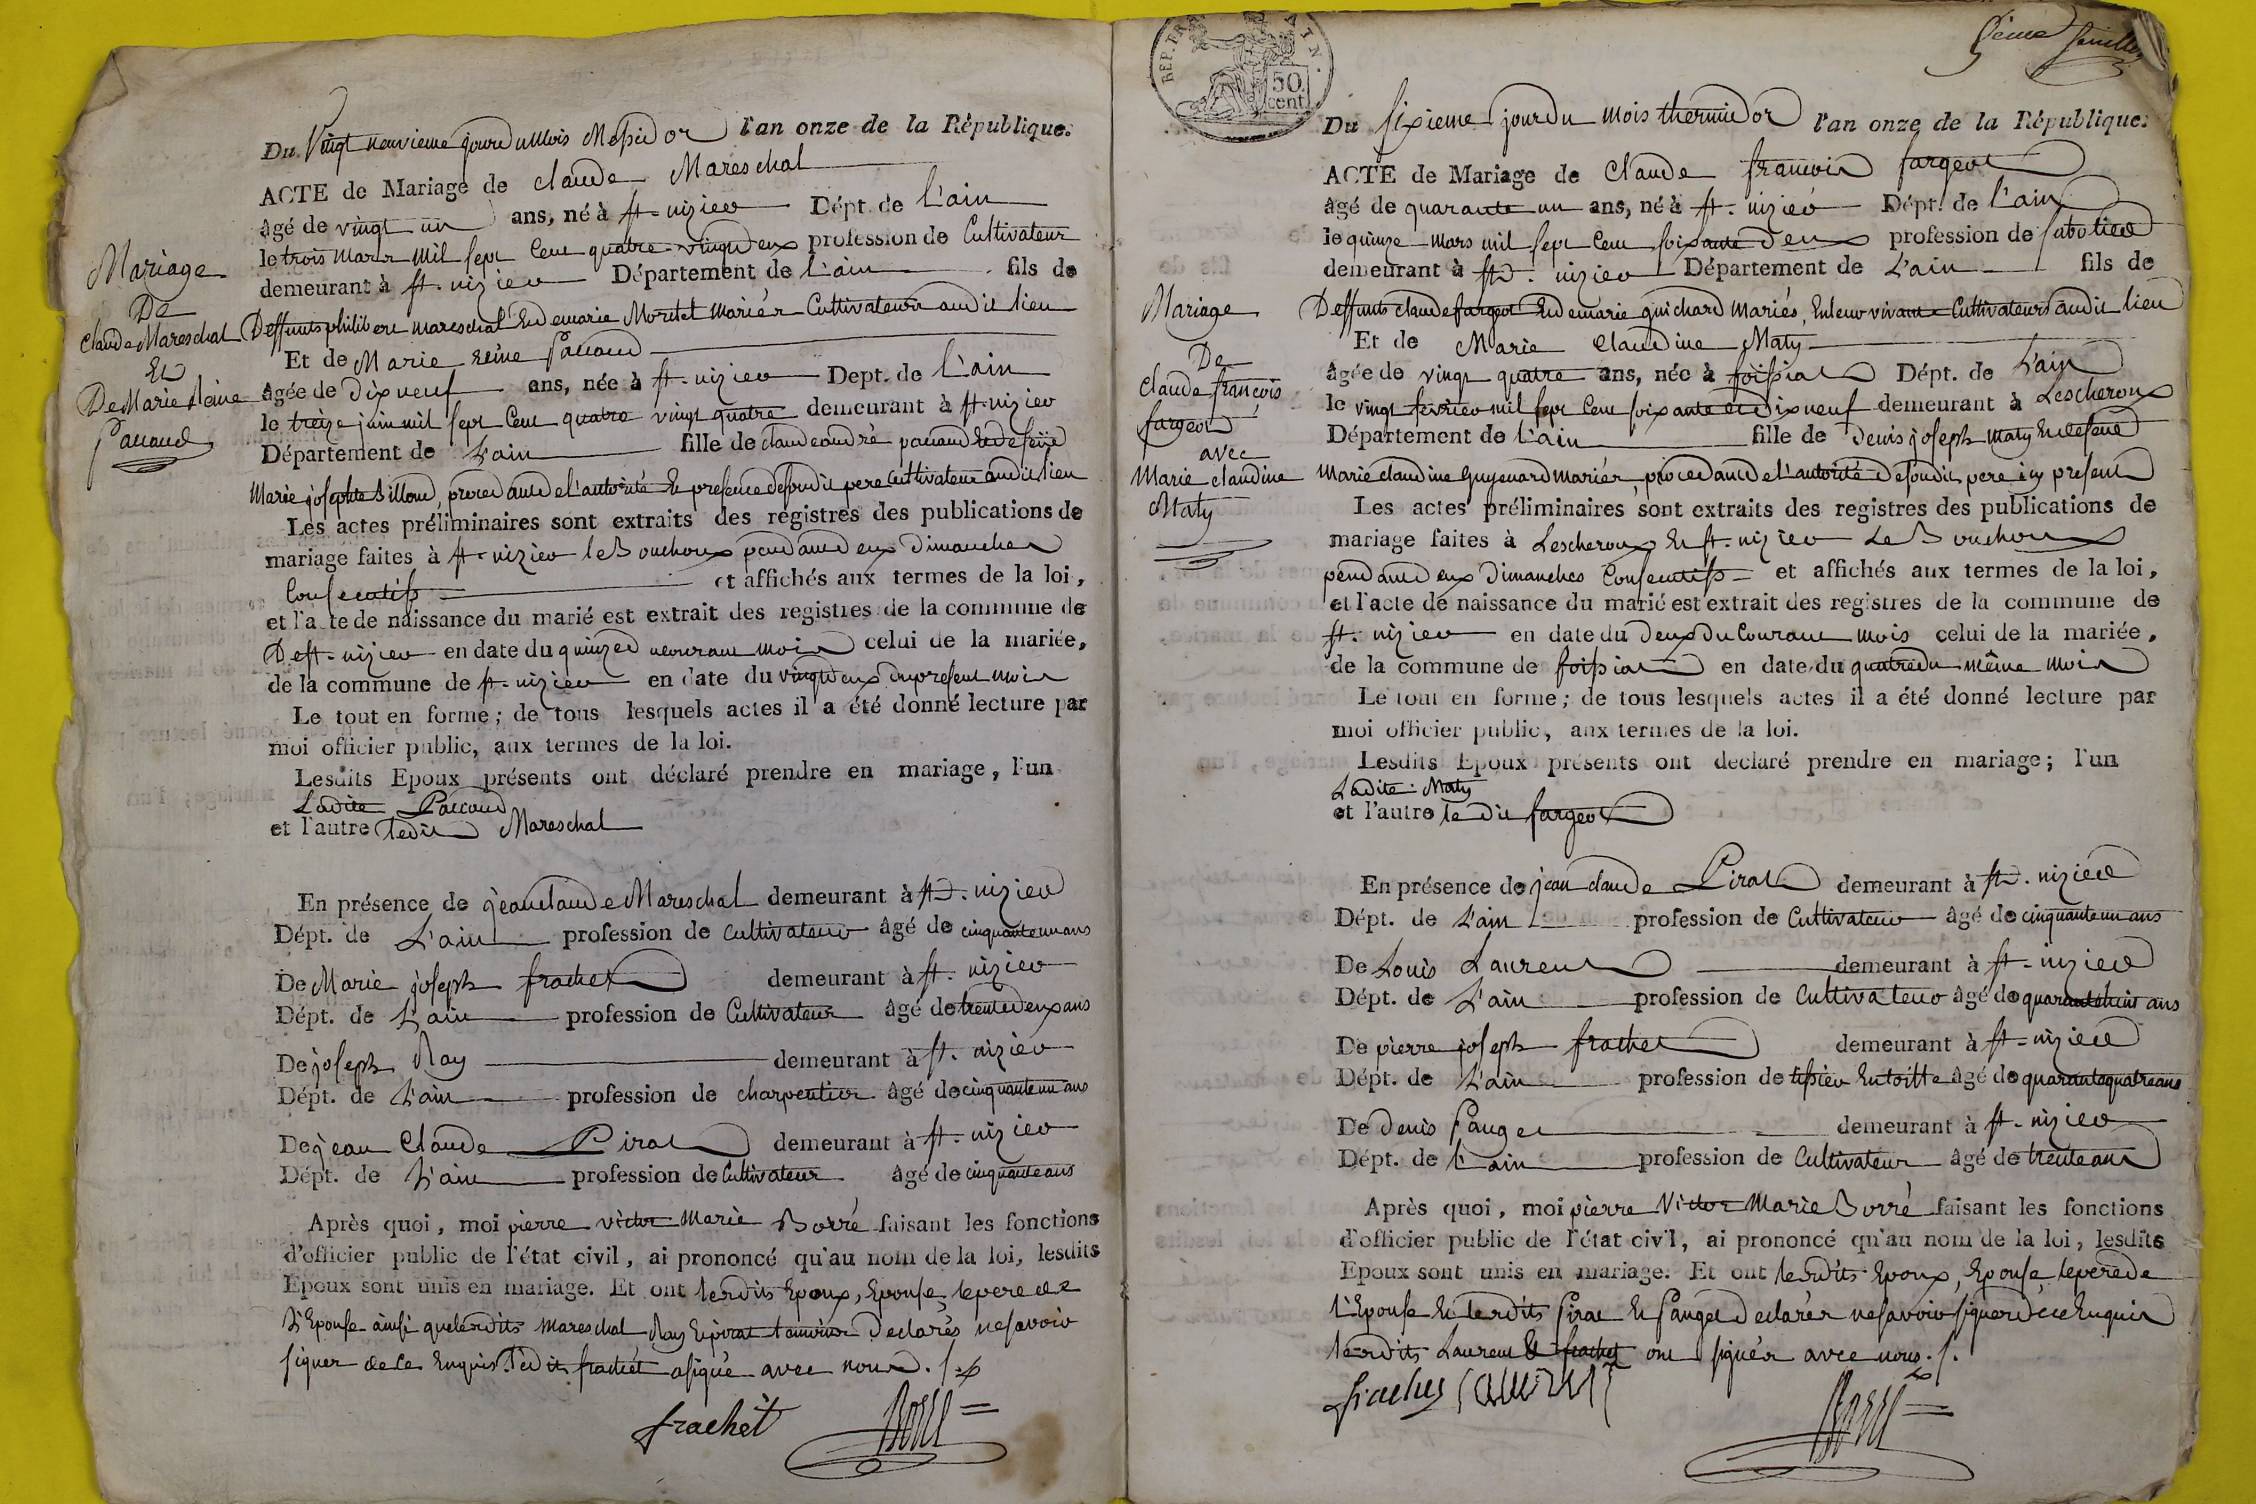 Du Vingt neuvieme jour du Mois Messidor l'an onze de la République.
ACTE de Mariage de Claude Mareschal
âgé de vingt un ans, né à St. nizier Dépt. de L'ain
le trois mars mil sept Cent quatre vingt deux profession de Cultivateur
demeurant à St. nizier Département de L'ain fils de
Deffunts philibert mareschal Et de marie Moritel mariés Cultivateurs audit lieu
Et de Marie reine Paccaud
âgée de Dix neuf ans, née à St. nizier Dept. de L'ain
le treize juin mil sept Cent quatre vingt quatre demeurant à St. nizier
Département de L'ain fille de claude andré paccaud Et de feüe
Marie josephte Billoud, procedant de l'autorité Et presence de sondit pere Cultivateur audit lieu
Les actes préliminaires sont extraits des registres des publications de
mariage faites à St. nizier le Bouchoux pendant deux Dimanches
Consecutifs et affichés aux termes de la loi,
et l'acte de naissance du marié est extrait des registres de la commune de
De St. nizier en date du quinze du courant mois celui de la mariée,
de la commune de St. nizier en date du vingt deux du present mois
Le tout en forme ; de tous lesquels actes il a été donné lecture par
moi officier public, aux termes de la loi.
Lesdits Epoux présents ont déclaré prendre en mariage, l'un
Ladite Paccaud
et l'autre ledit Mareschal
En présence de jean claude Mareschal demeurant à St. nizier
Dépt. de L'ain profession de Cultivateur âgé de cinquante un ans
De Marie joseph frachet demeurant à St. nizier
Dépt. de L'ain profession de Cultivateur âgé de trente deux ans
De joseph Ray demeurant à St. nizier
Dépt. de L'ain profession de charpentier âgé de cinquante un ans
De jean Claude Pirat demeurant à St. nizier
Dépt. de L'ain profession de Cultivateur âgé de cinquante ans
Après quoi, moi pierre victor Marie Borré faisant les fonctions
d'officier public de l'état civil, ai prononcé qu'au nom de la loi, lesdits
Epoux sont unis en mariage. Et ont lesdits Epoux, Epouse, le pere de
L'Epouse ainsi que lesdits mareschal Ray Et pirat temoins Declarés ne savoir
signer de ce Enquis. Ledit frachet a signé avec nous.
frachet Borré
Mariage
De
Claude Mareschal
Et
De Marie Reine
Paccaud
REP. FRA AIN.
50.
cent
5eme feuille
Du sixieme jour du mois thermidor l'an onze de la République.
ACTE de Mariage de Claude francois fargeot
âgé de quarante un ans, né à St. nizier Dépt. de L'ain
le quinze mars mil sept Cent soixante Deux profession de sabotier
demeurant à St. nizier Département de L'ain fils de
Deffunts claude fargeot Et de marie guichard Mariés, En leur vivant Cultivateurs audit lieu
Et de Marie Claudine Maty
âgée de vingt quatre ans, née à foissiat Dépt. de L'ain
le vingt fevrier mil sept Cent soixante et dix neuf demeurant à Lescheroux
Département de L'ain fille de Denis joseph Maty Et de feue
Marie claudine Guyenard mariés, procedant de L'autorité De sondit pere icy present
Les actes préliminaires sont extraits des registres des publications de
mariage faites à Lescheroux Et St. nizier Le Bouchoux
pendant deux Dimanches Consecutifs et affichés aux termes de la loi,
et l'acte de naissance du marié est extrait des registres de la commune de
St. nizier en date du Deux du Courant mois celui de la mariée,
de la commune de foissiat en date du quatre du même mois
Le tout en forme ; de tous lesquels actes il a été donné lecture par
moi officier public, aux termes de la loi.
Lesdits Epoux présents ont declaré prendre en mariage ; l'un
Ladite Maty
et l'autre le dit fargeot
En présence de jean claude Pirat demeurant à St. nizier
Dépt. de L'ain profession de Cultivateur âgé de cinquante un ans
De Louis Laurent demeurant à St. nizier
Dépt. de L'ain profession de Cultivateur âgé de quarante huit ans
De pierre joseph frachet demeurant à St. nizier
Dépt. de L'ain profession de tissier En toille âgé de quarante quatre ans
De denis Pauget demeurant à St. nizier
Dépt. de L'ain profession de Cultivateur âgé de trente ans
Après quoi, moi pierre Victor Marie Borré faisant les fonctions
d'officier public de l'état civil, ai prononcé qu'au nom de la loi, lesdits
Epoux sont unis en mariage. Et ont lesdits Epoux, Epouse le pere de
L'Epouse Et lesdits Pirat Et Pauget Declarés ne savoir signer de ce Enquis
lesdits Laurent Et frachet ont signés avec nous.
frachet Laurent Borré
Mariage
De
claude françois
fargeot
avec
Marie claudine
Maty